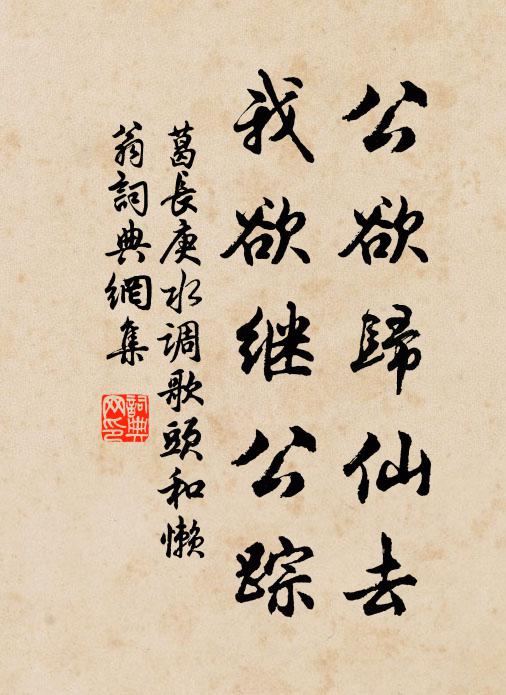 公欲歸仙去
我欲继公踪
葛長庚水调歌頭和懒
翁詞典網集
詞典
网印